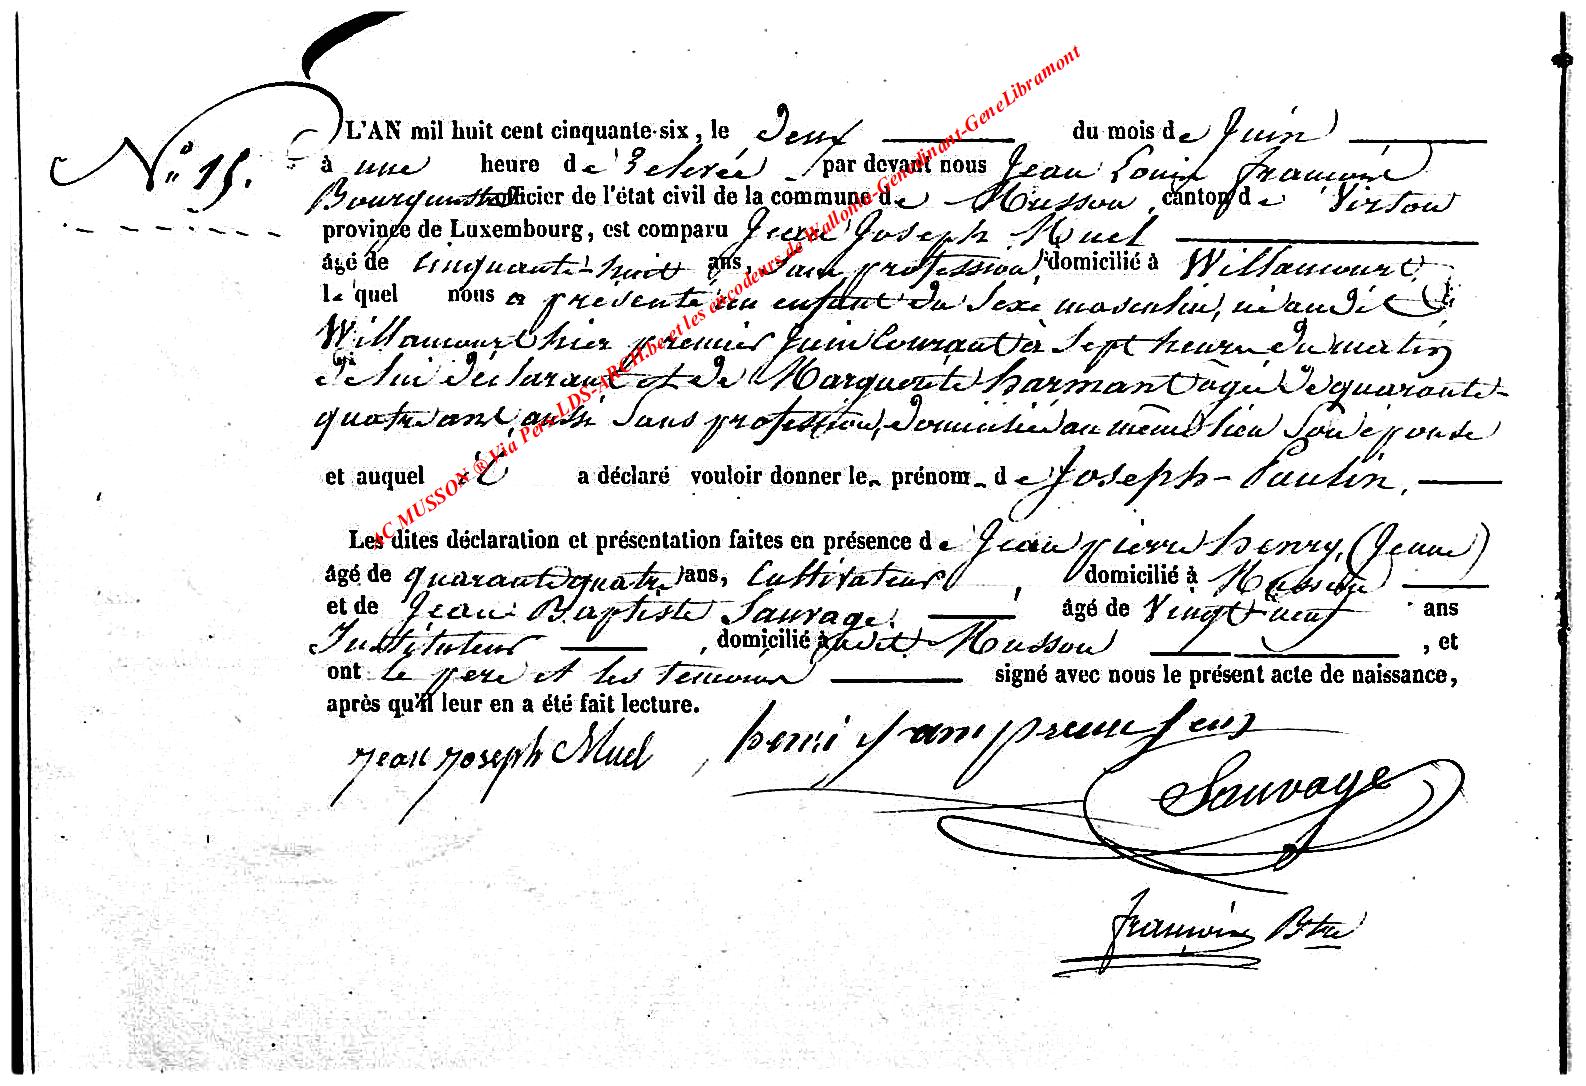 N° 15.
L'AN mil huit cent cinquante-six, le Deux du mois de Juin
à une heure de relevée par devant nous Jean Louis François
Bourgmestre officier de l'état civil de la commune de Musson canton de Virton
province de Luxembourg, est comparu Jean Joseph Muel
âgé de cinquante-huit ans, sans profession domicilié à Willancourt
lequel nous a présenté un enfant du sexe masculin, né au dit
Willancourt hier premier Juin Courant à Sept heures du matin
de lui déclarant et de Marguerite harmant âgée de quarante-
quatre ans, aussi Sans profession, domiciliée au même lieu Son épouse
et auquel il a déclaré vouloir donner le prénom de Joseph-Paulin.
Les dites déclaration et présentation faites en présence de Jean pierre henry, (Jeune)
âgé de quarante quatre ans, Cultivateur, domicilié à Musson
et de Jean Baptiste Sauvage. âgé de Vingt neuf ans
Instituteur, domicilié à udit Musson, et
ont le père et les témoins signé avec nous le présent acte de naissance,
après qu'il leur en a été fait lecture.
Jean Joseph Muel, henri
Sauvage
François Btre
AC MUSSON ® Via Pers-LDS-ARCH.be et les encodeurs de Wallonia-Genedinant-GeneLibramont